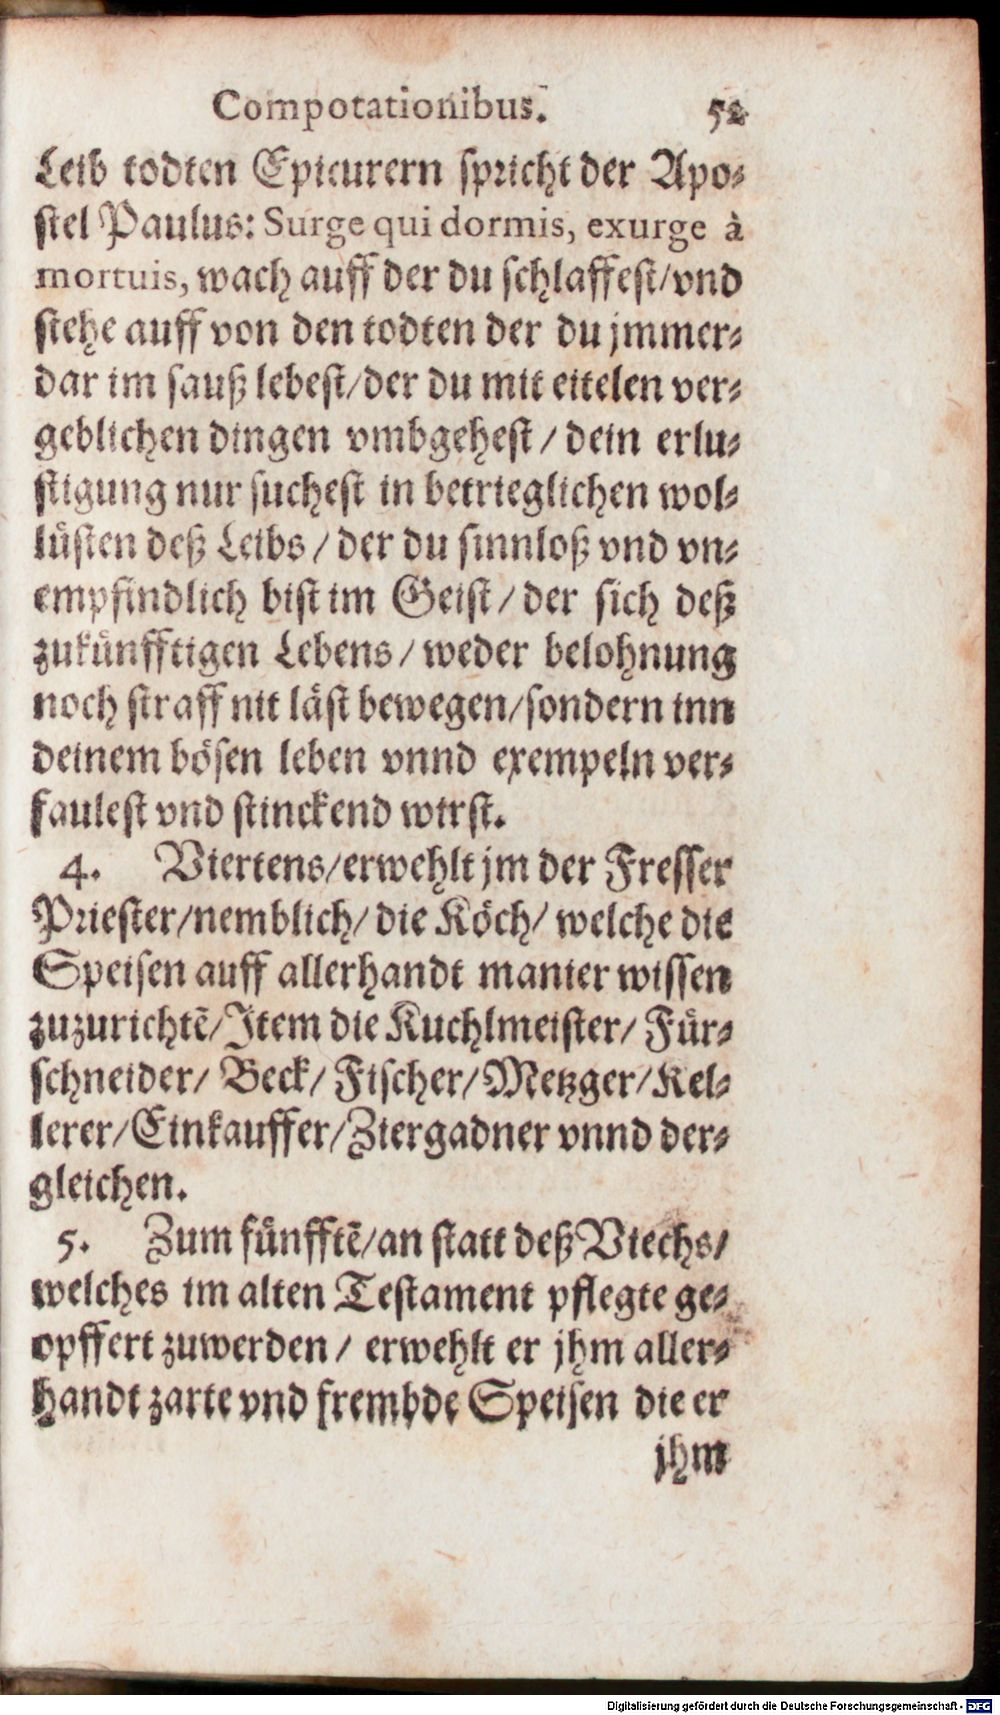 Compotationibus. 52
Leib todten Epicurern spricht der Apo-
stel Paulus: Surge qui dormis, exurge à
mortuis, wach auff der du schlaffest/vnd
stehe auff von den todten der du jmmer-
dar im sauß lebest/der du mit eitelen ver-
geblichen dingen vmbgehest / dein erlu-
stigung nur suchest in betrieglichen wol-
lüsten deß Leibs / der du sinnloß vnd vn-
empfindlich bist im Geist / der sich deß
zukünfftigen Lebens / weder belohnung
noch straff nit läst bewegen/sondern inn
deinem bösen leben vnnd exempeln ver-
faulest vnd stinckend wirst.
4. Viertens/erwehlt jm der Fresser
Priester/nemblich/ die Köch/ welche die
Speisen auff allerhandt manier wissen
zuzurichtẽ/Item die Kuchlmeister/ Für-
schneider/ Beck/ Fischer/Metzger/Kel-
lerer/Einkauffer/Ziergadner vnnd der-
gleichen.
5. Zum fünfftẽ/an statt deß Viechs/
welches im alten Testament pflegte ge-
opffert zuwerden / erwehlt er jhm aller-
handt zarte vnd frembde Speisen die er
jhm
Digitalisierung gefördert durch die Deutsche Forschungsgemeinschaft - DFG